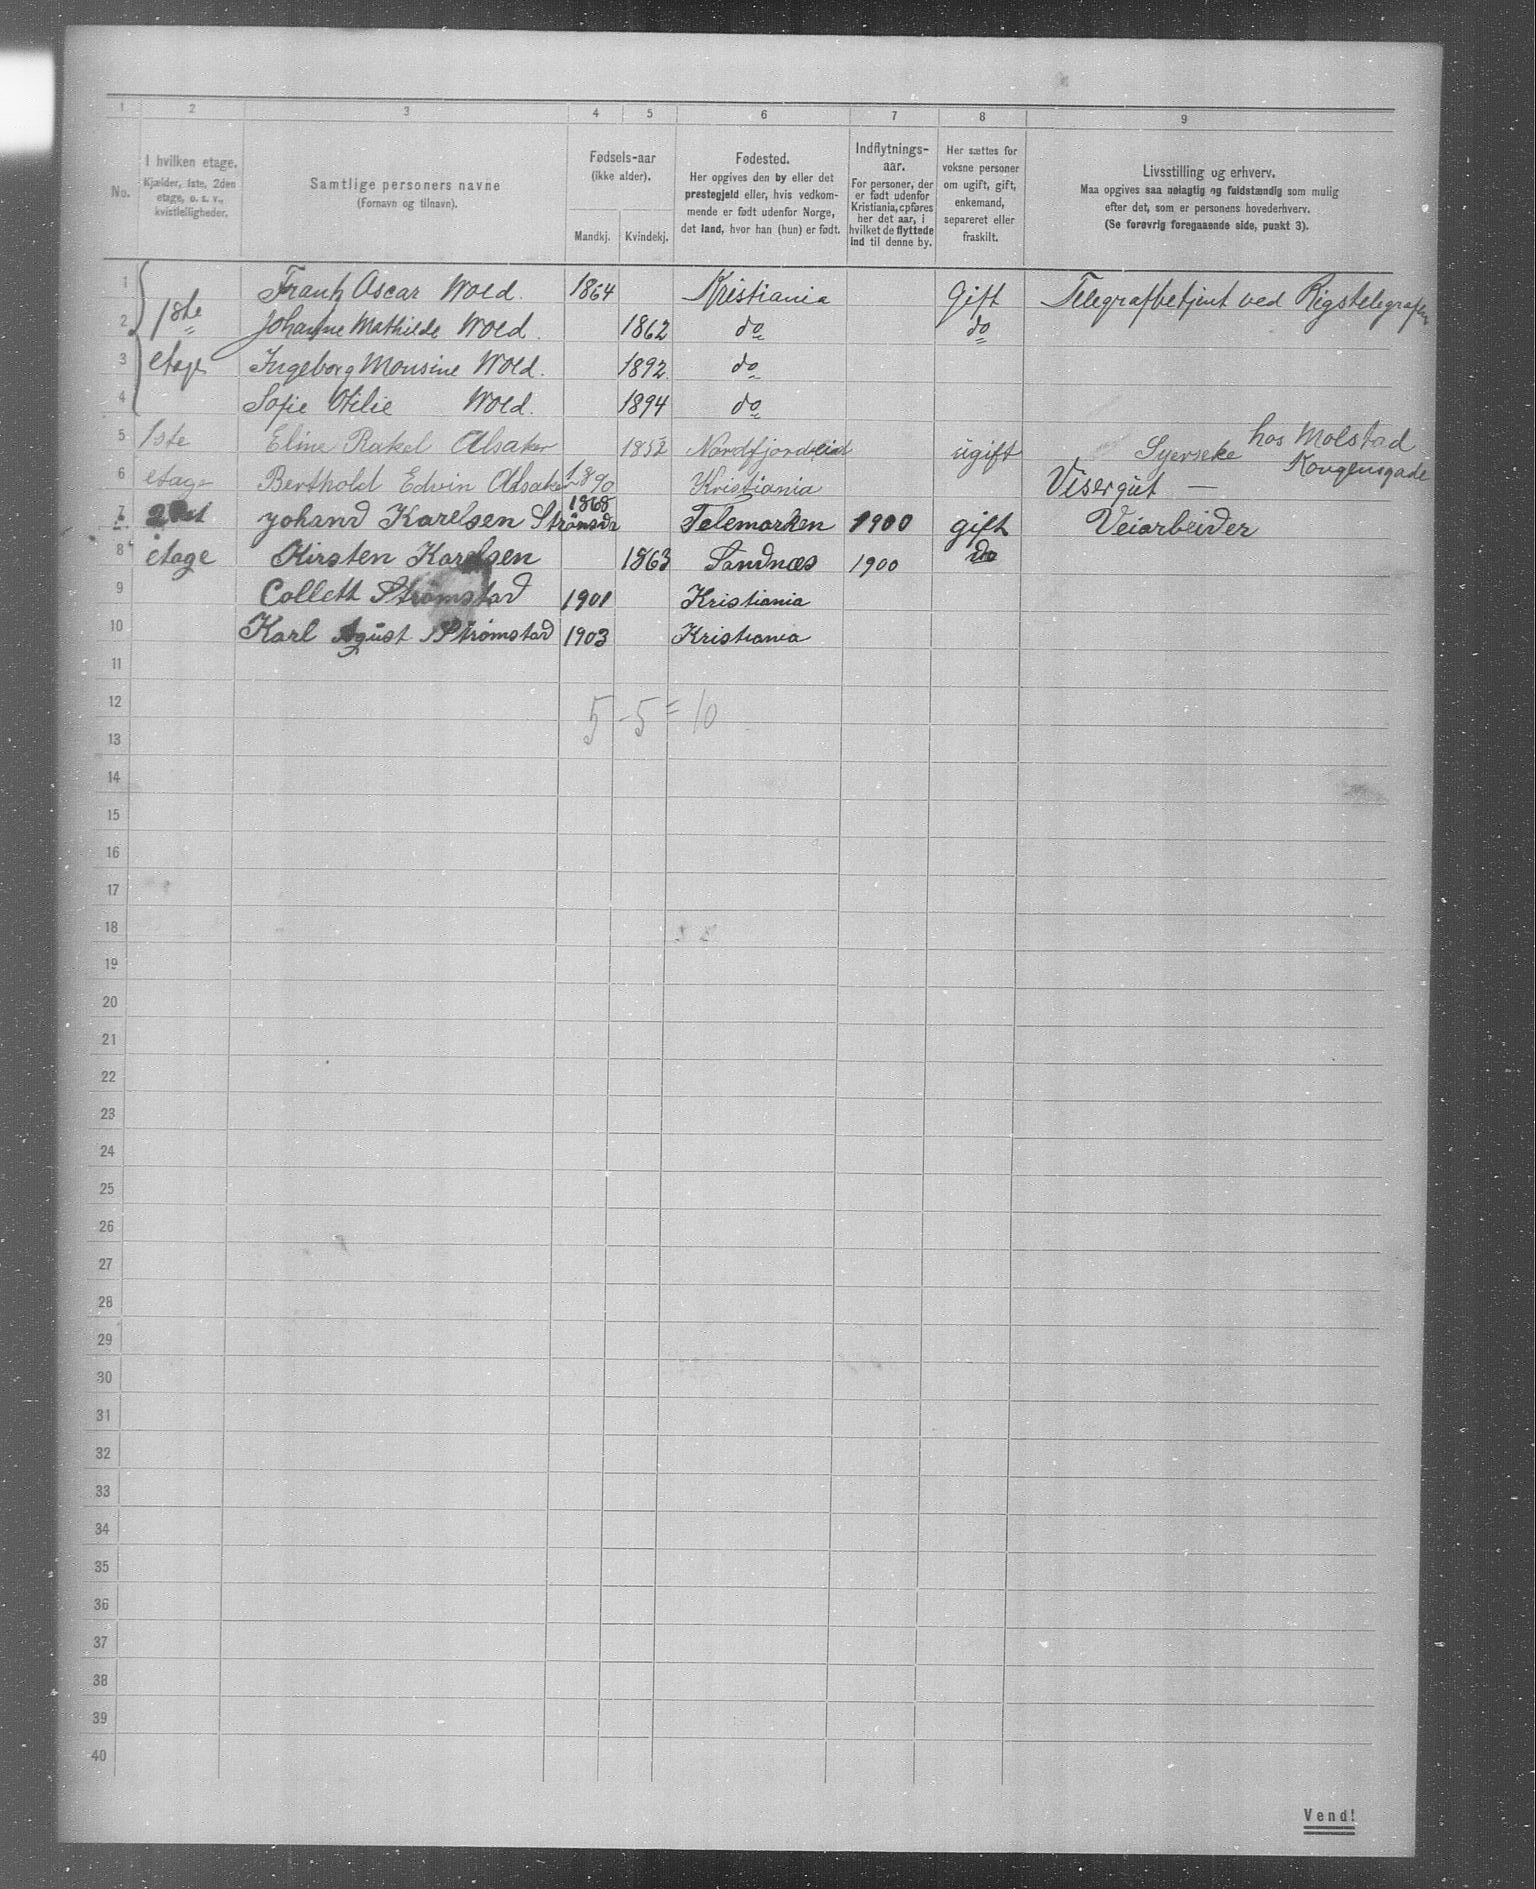 1 2 3 4 5 6 7 8 9
No.
I hvilken etage.
Kjælder, 1ste, 2den
etage, o. s. v.,
kvistleiligheder.
Samtlige personers navne
(Fornavn og tilnavn).
Fødsels-aar
(ikke alder).
Mandkj. Kvindekj.
Fødested.
Her opgives den by eller det
prestegjeld eller, hvis vedkom-
mende er født udenfor Norge,
det land, hvor han (hun) er født.
Indflytnings-
aar.
For personer, der
er født udenfor
Kristiania, opføres
her det aar, i
hvilket de flyttede
ind til denne by.
Her sættes for
voksne personer
om ugift, gift,
enkemand,
separeret eller
fraskilt.
Livsstilling og erhverv.
Maa opgives saa nøiagtig og fuldstændig som mulig
efter det, som er personens hovederhverv.
(Se forøvrig foregaaende side, punkt 3).
1 1ste Frank Oscar Wold. 1864 Kristiania Gift Telegrafbetjent ved Rigstelegrafen
2 Johanne Mathilde Wold. 1862 do do
3 etage Ingeborg Monsine Wold. 1892. do
4 Sofie Otilie Wold. 1894 do
5 1ste Eline Rakel Alsaker 1852 Nordfjordeid ugift Syerske hos Molstad
Kongensgade
6 etage Berthold Edvin Alsaker 1890 Kristiania Visergut —
7 Johand Karelsen 1868 Telemarken 1900 gift Veiarbeider
8 etage Kirsten Karelsen 1863 Sandnæs 1900 do
9 Collett Strømstad 1901 Kristiania
10 Karl Agust Strømstad 1903 Kristiania
11
12 5 - 5 = 10
13
14
15
16
17
18
19
20
21
22
23
24
25
26
27
28
29
30
31
32
33
34
35
36
37
38
39
40
Vend!